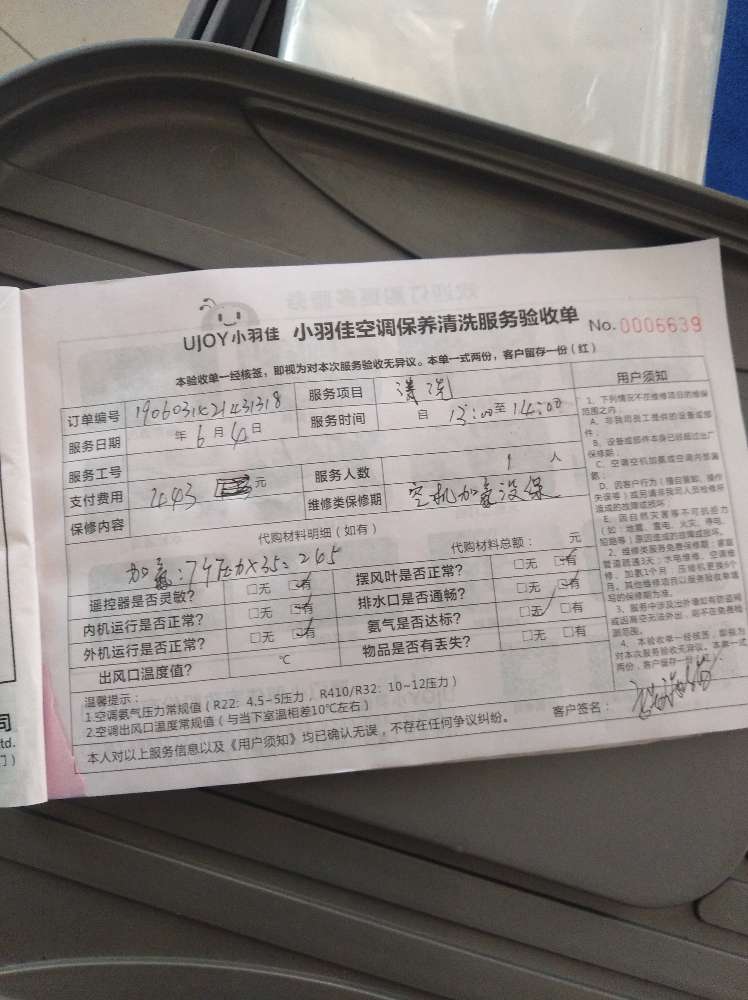 UJOY小羽佳 小羽佳空调保养清洗服务验收单 No.0006639
本验收单一经核签，即视为对本次服务验收无异议。本单一式两份，客户留存一份（红）
订单编号 服务项目 清洗
服务日期 年6月4日 服务时间 自13:00至14:00
服务工号
支付费用 443 元 服务人数 1 人
保修内容 维修类保修期 空机加氨没保
代购材料明细（如有） 代购材料总额： 元
遥控器是否灵敏? □无 □有 摆风叶是否正常? □无 □有
内机运行是否正常? □无 □有 排水口是否通畅? □无 □有
外机运行是否正常? □无 □有 氨气是否达标? □无 □有
出风口温度值? ℃ 物品是否有丢失? □无 □有
温馨提示：
1.空调氨气压力常规值（R22: 4.5~5压力，R410/R32: 10~12压力）
2.空调出风口温度常规值（与当下室温相差10℃左右）
本人对以上服务信息以及《用户须知》均已确认无误，不存在任何争议纠纷。 客户签名：
用户须知
1、下列情况不在维修项目的维保
范围之内：
A、非我司员工提供的设备或部
件；
B、设备或部件本身已经超过出厂
保修期；
C、空调空机加氨或空调内部漏
氨；
D、因客户行为（擅自装卸、操作
失误等）或另请非我司人员检修所
造成的故障或损坏；
E、因自然灾害等不可抗拒力
（如：地震、雷电、火灾、停电、
短路等）原因造成的故障或损坏。
2、维修类服务免费保修期：家庭
管道疏通3天；水电维修、空调维
修、加氨1个月，压缩机更换6个
月，其他维修项目以服务验收单填
写的保修期为准。
4、本验收单一经核签，即视为
对本次服务验收无异议。本单一式
两份，客户留存一份
司
td.
门）